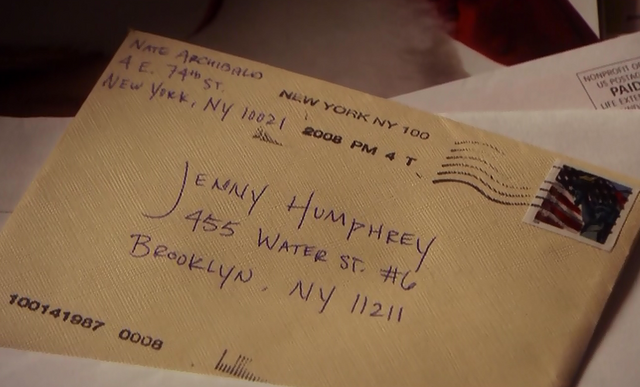 NATE ARCHIBALD
4 E. 74th ST.
NEW YORK, NY 10021
NEW YORK NY 100
2008 PM 4 T
JENNY HUMPHREY
455 WATER ST. #6
BROOKLYN, NY 11211
100141987 0008
NONPROFIT
US POSTAG
PAID
LIFE EXTE